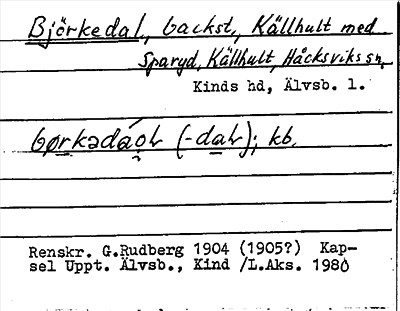 Björkedal, backst., Källhult med
Sparyd, Källhult, Håcksviks sn,
Kinds hd, Älvsb. l.
(-dal); kb.
Renskr. G.Rudberg 1904 (1905?) Kap-
sel Uppt. Älvsb., Kind /L.Aks. 1980